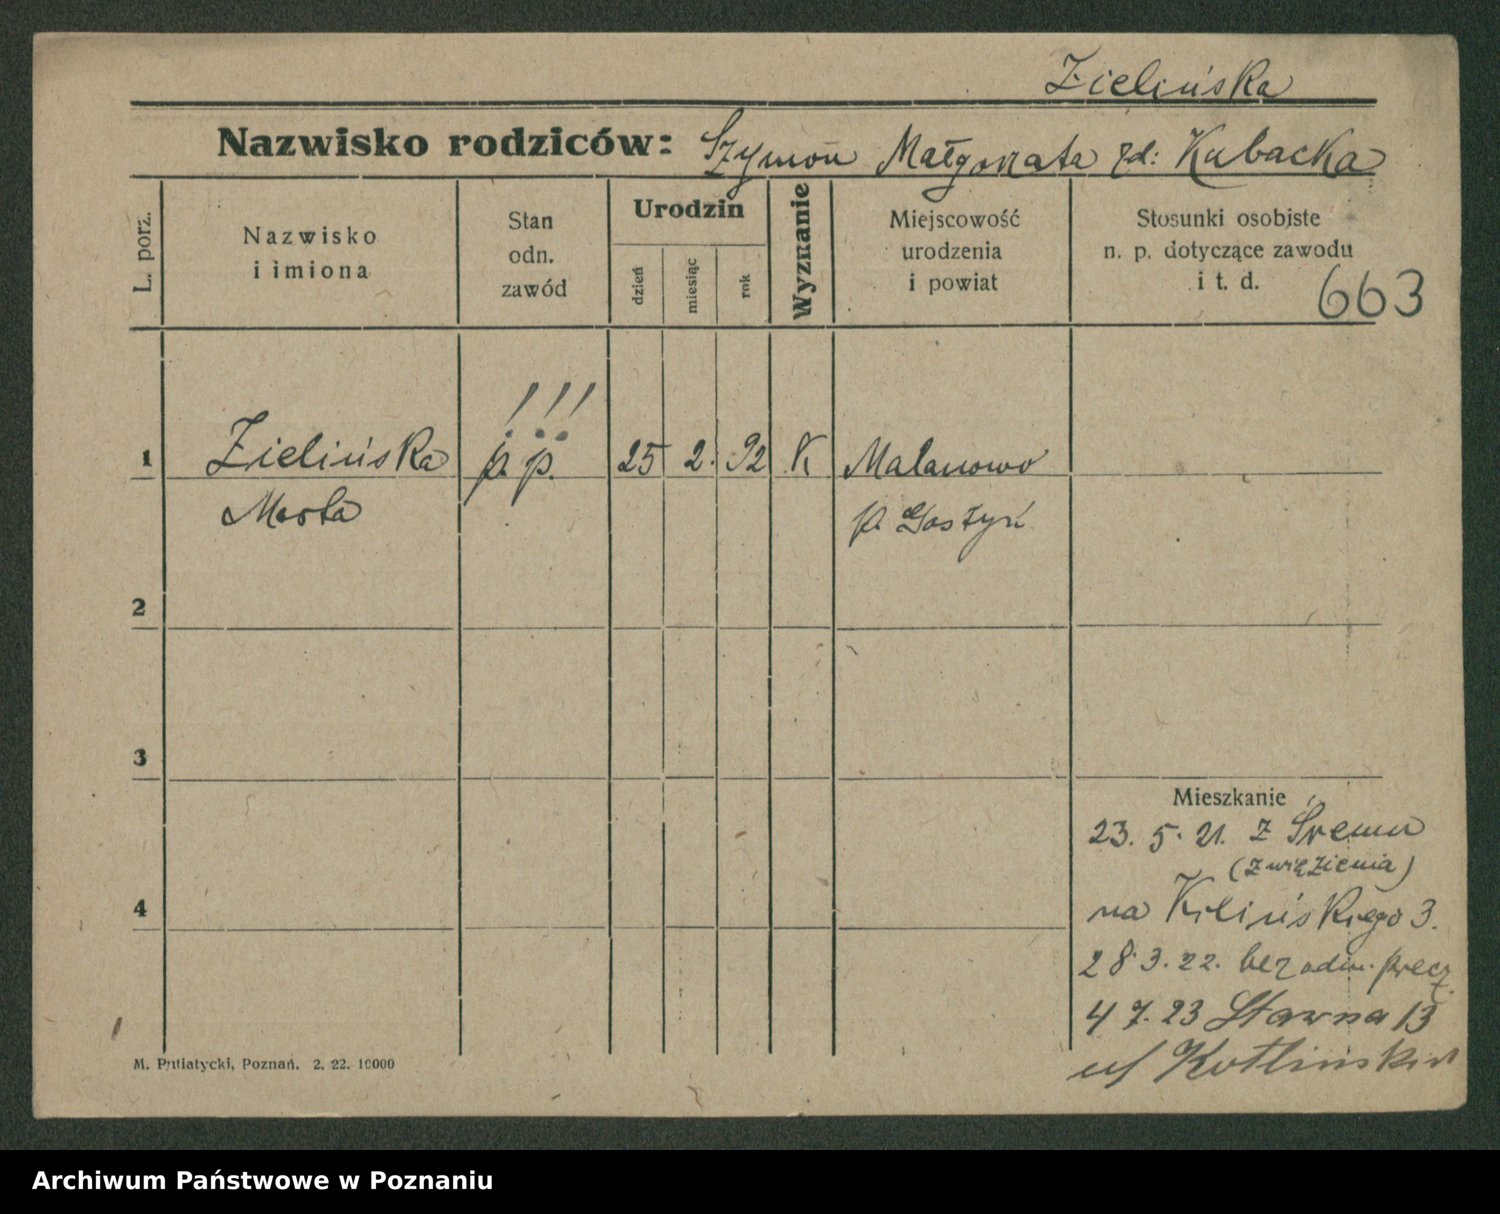 Zielińska
Nazwisko rodziców: Szymon Małgorzata zd: Kubacka
L. porz.
Nazwisko
i imiona
Stan
odn.
zawód
Urodzin
dzień
miesiąc
rok
Wyznanie
Miejscowość
urodzenia
i powiat
Stosunki osobiste
n. p. dotyczące zawodu
i t. d.
663
!!!
1 Zielińska p. p. 25 2. 92 K Malanowo
Marta p. Gostyń
2
3
4
Mieszkanie
23. 5. 21. z Śremu
(z więzienia)
na Kilińskiego 3.
28. 3. 22. bez odm. precz.
4 7. 23 Stawna 13
u/ Kotlińskich
M. Putiatycki, Poznań. 2. 22. 10000
Archiwum Państwowe w Poznaniu